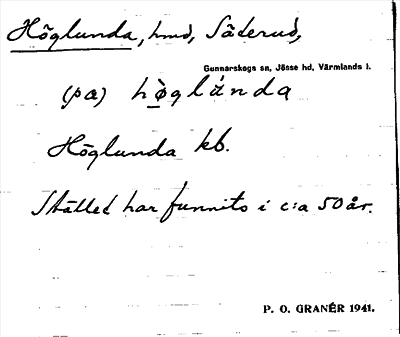 Höglunda, hmd, Säterud,
Gunnarskogs sn, Jösse hd, Värmlands l.
(på) hø̀glúnda
Höglunda kb.
Stället har funnits i c:a 50 år.
P. O. GRANÉR 1941.